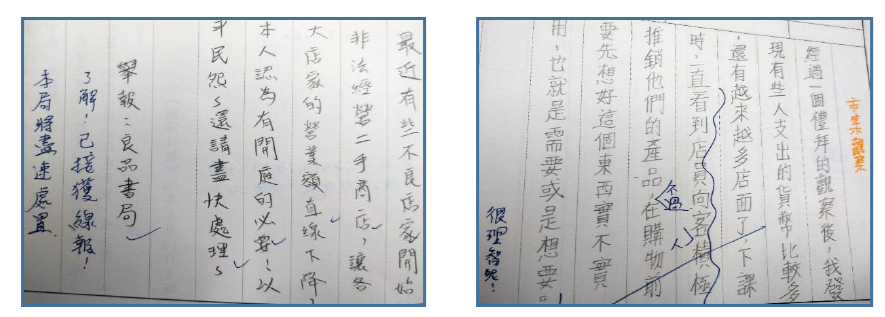 最近有些不良店家開始
非法經營二手商店，讓各
大店家的營業額直線下降，
本人認為有開庭的必要！以
平民怨～還請盡快處理～
舉報：良品書局
了解！已接獲線報！
本局將盡速處置.
市集觀察
經過一個禮拜的觀察後，我發
現有些人支出的貨幣比較多
，還有越來越多店面了，下課
時，一直看到店員向客人積極
推銷他們的產品，不過在購物前
要先想好這個東西實不實
用，也就是需要或是想要
很理智呢！